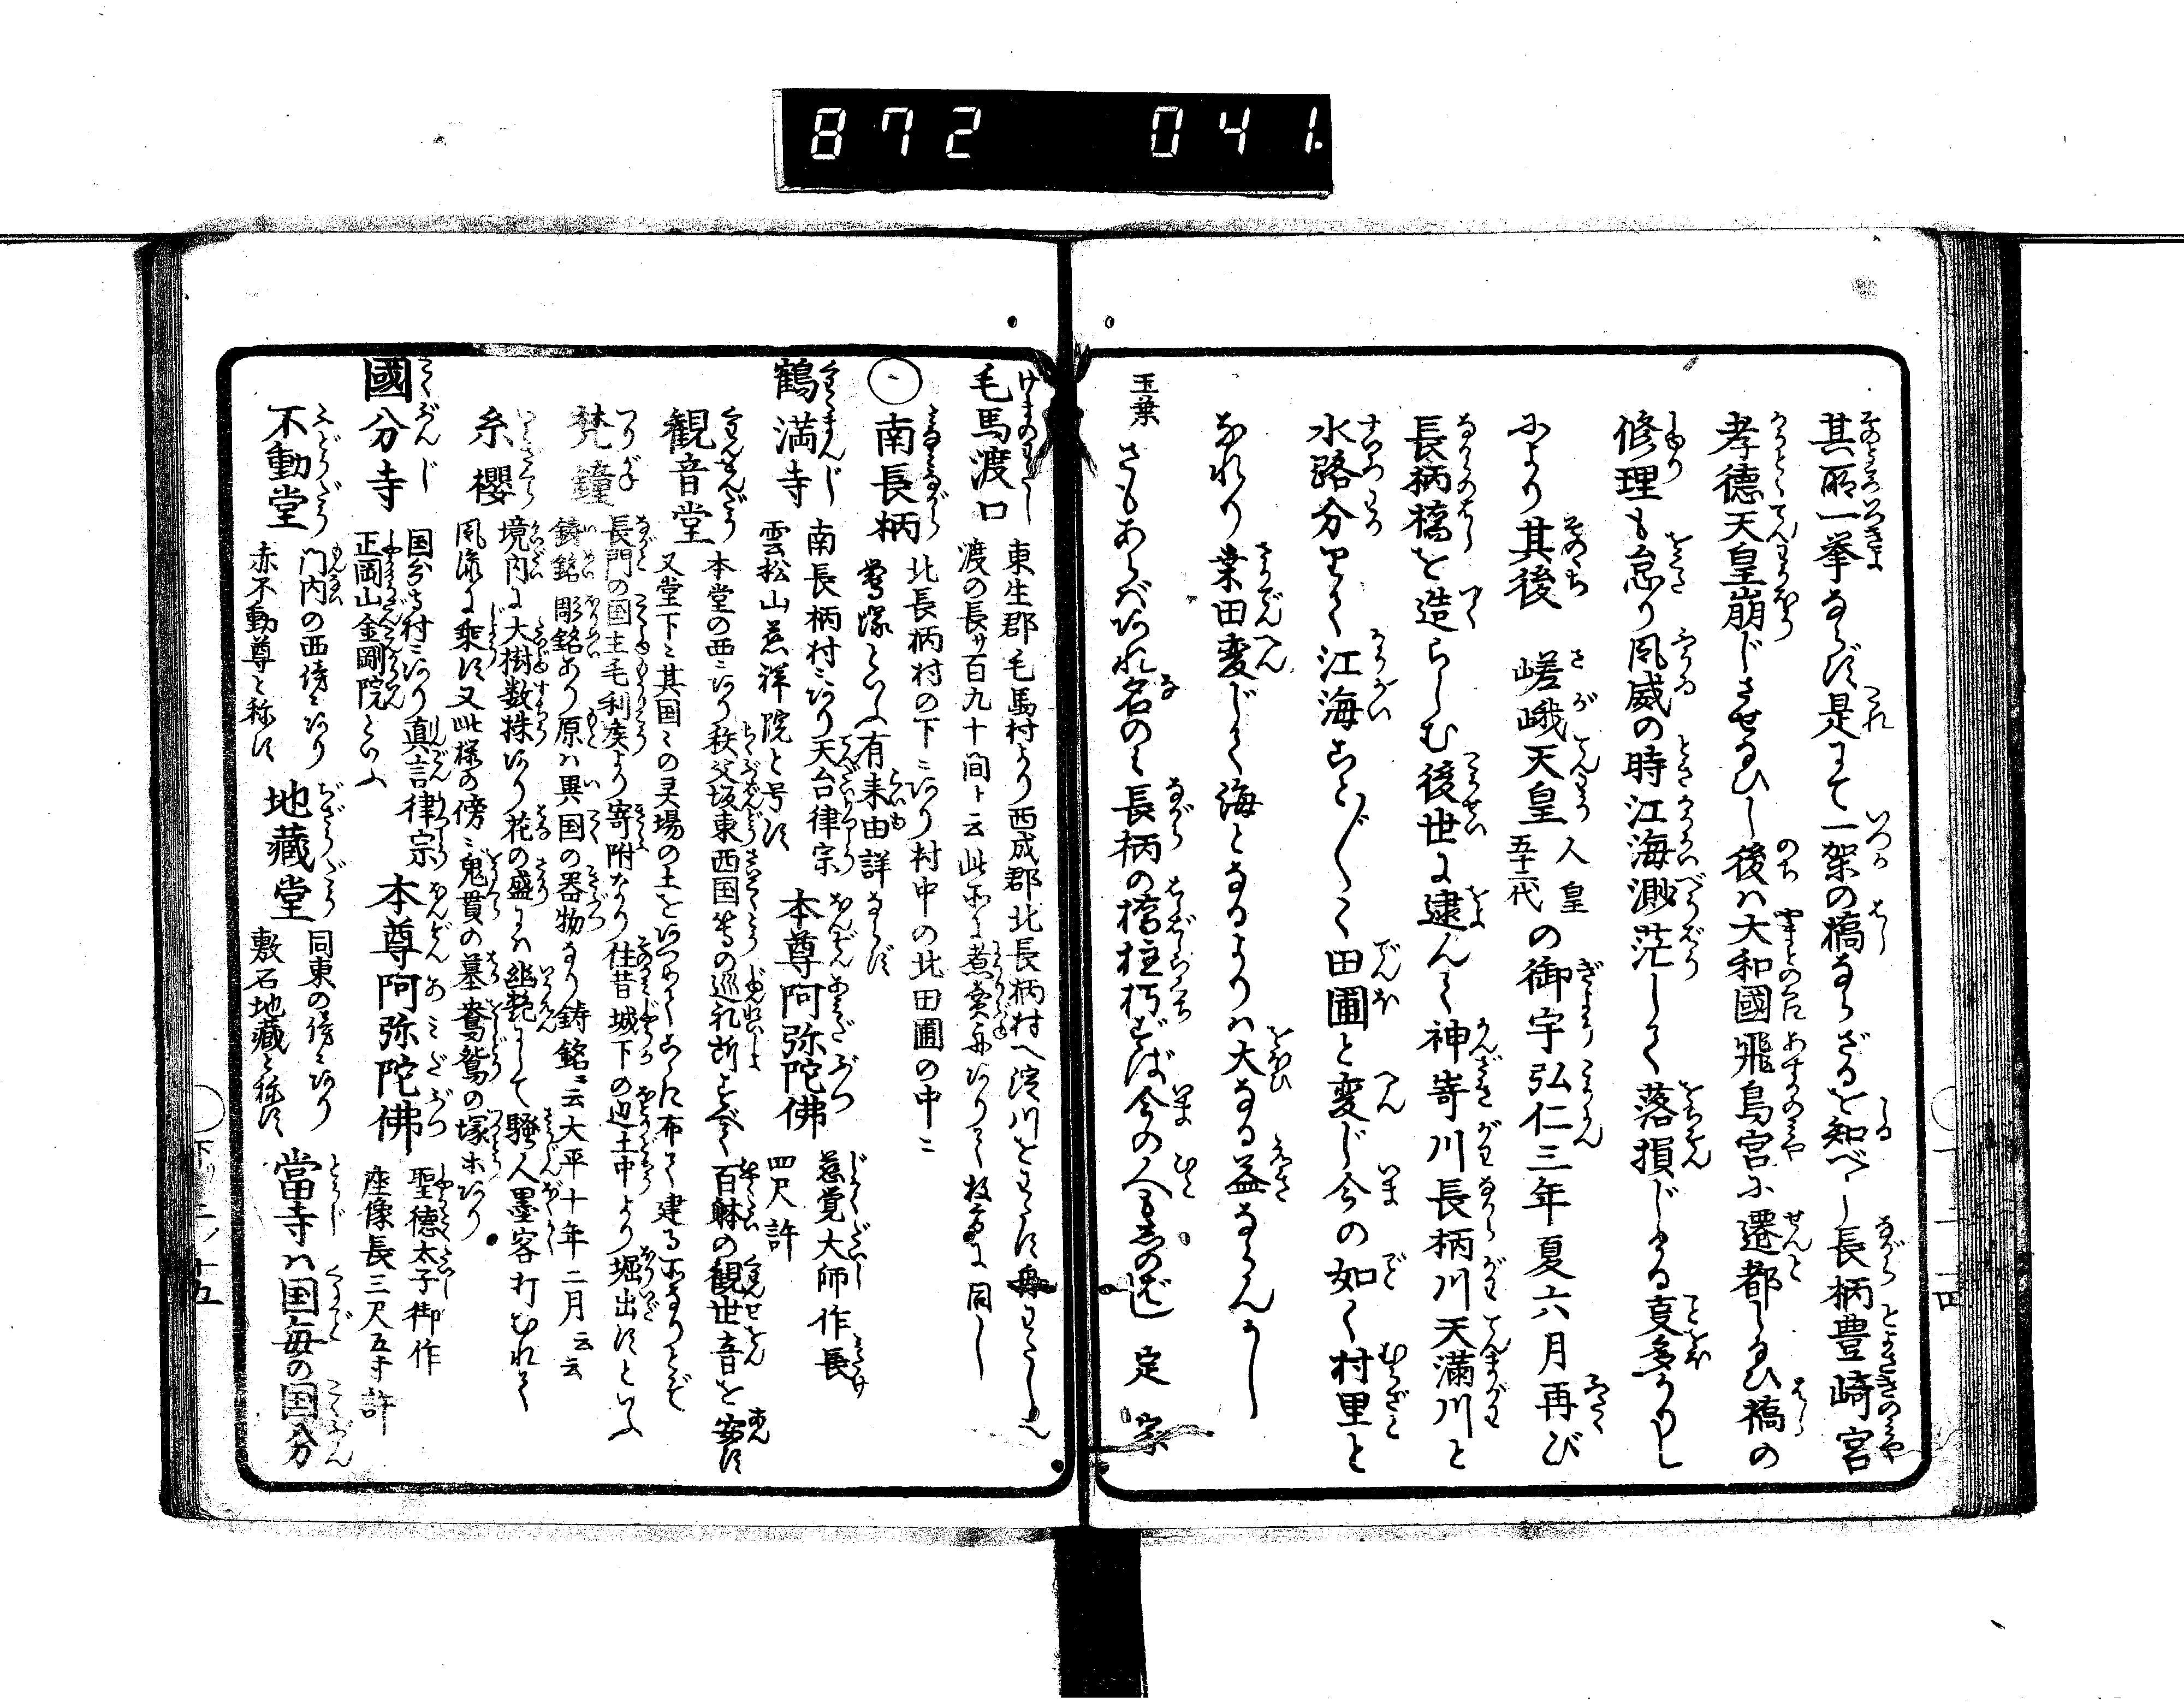 872 041.
其所一挙ならず是にて一架の橋ならざるを知べし長柄豊崎宮
孝徳天皇崩じさせ給ひし後ハ大和國飛鳥宮に遷都し給ひ橋の
修理も怠り風威の時江海渺茫しく落損じける事多かりし
により其後 嵯峨天皇 人皇五十二代 の御宇弘仁三年夏六月再び
長柄橋を造らしむ後世に逮んで神嵜川長柄川天満川と
水路分りて江海こと〴〵く田圃と変じ今の如く村里と
なれり桒田変じて海となるよりハ大なる益ならんかし
玉葉 さもあらバあれ名のミ長柄の橋柱朽ずば今の人もしのばじ 定家
毛馬渡口 東生郡毛馬村より西成郡北長柄村へ淀川をわたす舟わたし也
渡の長サ百九十間ト云此所に煮賣舟ありて枚方に同し
南長柄 北長柄村の下ニあり村中の北田圃の中ニ
鶯塚といふ有来由詳ならず
鶴満寺 南長柄村ニあり天台律宗
雲松山慈祥院と号す
本尊阿弥陀佛 慈覚大師作長
四尺許
観音堂 本堂の西ニあり秩父坂東西国等の巡礼所をすべて百躰の観世音を安す
又堂下ニ其国〻の灵場の土をあつめてこゝに布て建る所なりとぞ
梵鐘 長門の国主毛利矦より寄附なり往昔城下の辺土中より堀出すといふ
鋳銘彫銘あり原ハ異国の器物なり鋳銘ニ云大平十年二月云云
糸櫻 境内に大樹数株あり花の盛にハ幽艶にして騒人墨客打むれて
風流に乗す又此様の傍ニ鬼貫の墓鴛鴦の塚ホあり
國分寺 国分寺村ニあり真言律宗
正岡山金剛院といふ
本尊阿弥陀佛 聖徳太子御作
座像長三尺五寸許
不動堂 門内の西傍ニあり
赤不動尊と称す
地蔵堂 同東の傍ニあり
敷石地蔵と称す
當寺ハ国毎の国分